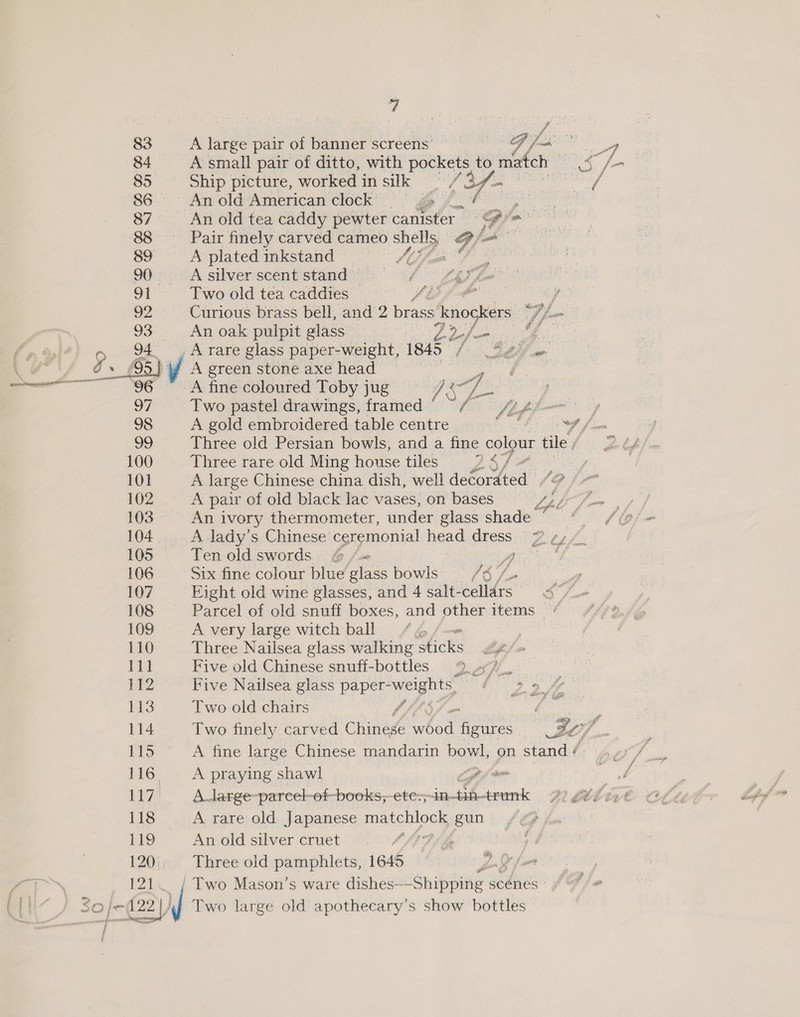 7
83 A large pair of banner screens 9/-
84 A small pair of ditto, with pockets to match 5/-
85 Ship picture, worked in silk
86 An old American clock
87 An old tea caddy pewter canister 9/-
88 Pair finely carved cameo shells, 9/-
89 A plated inkstand
90 A silver scent stand
91 Two old tea caddies
92 Curious brass bell, and 2 brass knockers 7/-
93 An oak pulpit glass 22/-
94 A rare glass paper-weight, 1845
95 A green stone axe head
96 A fine coloured Toby jug
97 Two pastel drawings, framed
98 A gold embroidered table centre
99 Three old Persian bowls, and a fine colour tile
100 Three rare old Ming house tiles 25/-
101 A large Chinese china dish, well decorated
102 A pair of old black lac vases, on bases
103 An ivory thermometer, under glass shade
104 A lady's Chinese ceremonial head dress
105 Ten old swords 6/-
106 Six fine colour blue glass bowls
107 Eight old wine glasses, and 4 salt-cellars 5/-
108 Parcel of old snuff boxes, and other items
109 A very large witch ball
110 Three Nailsea glass walking sticks
111 Five old Chinese snuff-bottles
112 Five Nailsea glass paper-weights
113 Two old chairs
114 Two finely carved Chinese wood figures
115 A fine large Chinese mandarin bowl, on stand
116 A praying shawl
117 A large parcel of books, etc., in tin trunk
118 A rare old Japanese matchlock gun
119 An old silver cruet
120 Three old pamphlets, 1645
121 Two Mason's ware dishes—Shipping scenes
30/- 122 Two large old apothecary's show bottles